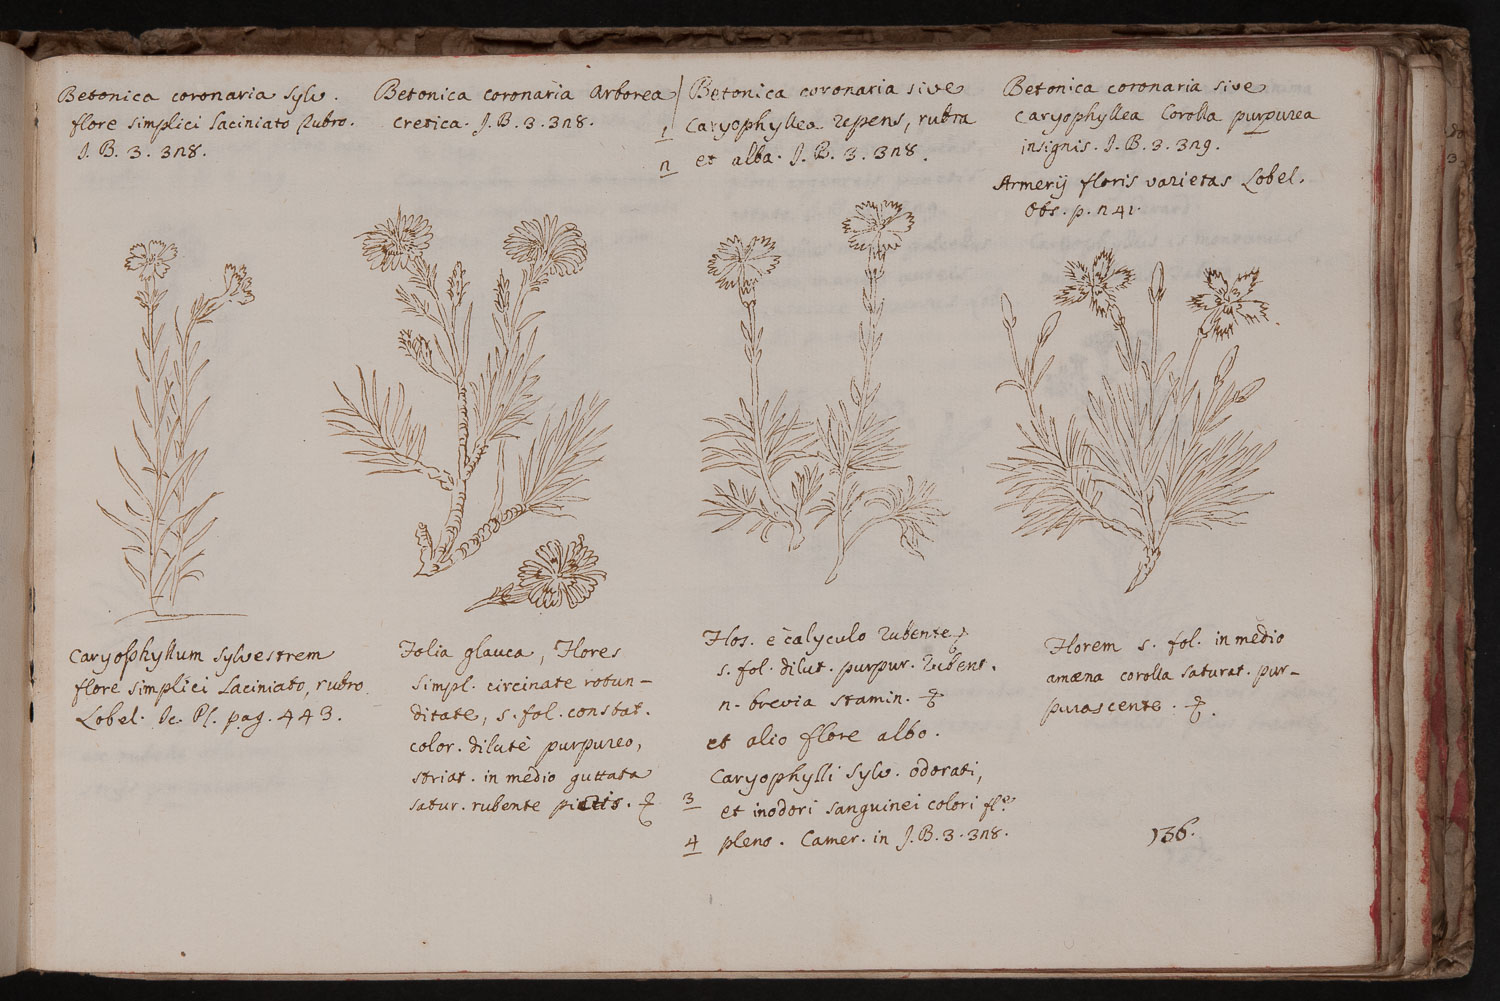 Betonica coronaria sylv.
flore simplici laciniato rubro.
J. B. 3. 3n8.
Betonica coronaria Arborea
cretica. J. B. 3. 3n8.
1
n
Betonica coronaria sive
Caryophyllea repens, rubra
et alba. J. B. 3. 3n8.
Betonica coronaria sive
Caryophyllea Corolla purpurea
insignis. J. B. 3. 3n9.
Armerij floris varietas Lobel.
Obs. p. n41.
Caryophyllum sylvestrem
flore simplici laciniato, rubro
Lobel. Ic. Pl. pag. 443.
Folia glauca, Flores
simpl. circinate rotun-
ditate, s. fol. constat.
color. dilutè purpureo,
striat. in medio guttata
satur. rubente pictis.
Flos. e calyculo rubente,
s. fol. dilut. purpur. rubent.
n. brevia stamin.
et alio flore albo.
Caryophylli sylv. odorati,
3
et inodori sanguinei colori fl.e
4
pleno. Camer. in J. B. 3. 3n8.
Florem s. fol. in medio
amœna corolla saturat. pur-
purascente.
136.